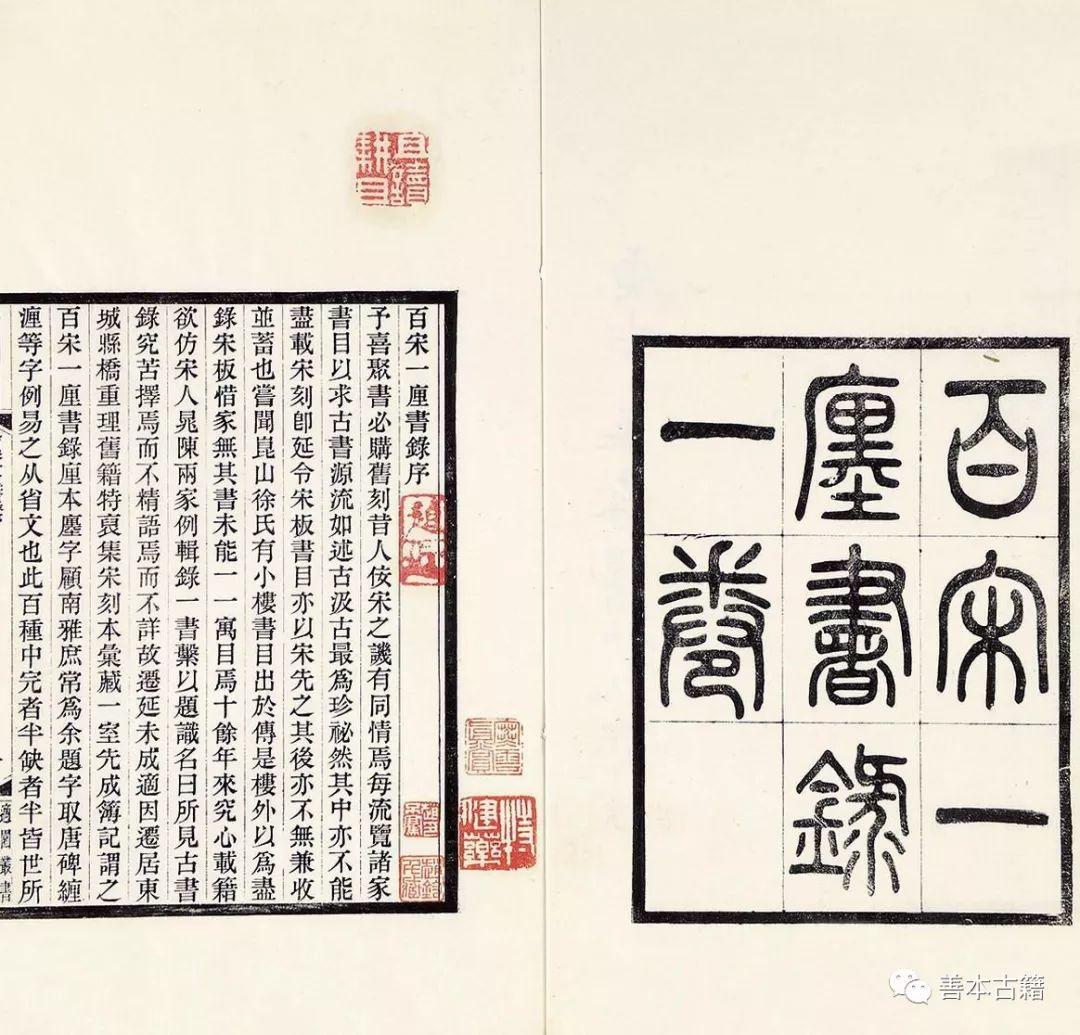 百宋一
廛書錄
一卷
百宋一厘書錄序
予喜聚書必購舊刻昔人佞宋之譏有同情焉每流覽諸家
書目以求古書源流如述古汲古最爲珍祕然其中亦不能
盡載宋刻卽延令宋板書目亦以宋先之其後亦不無兼收
並蓄也嘗聞崑山徐氏有小樓書目出於傳是樓外以爲盡
錄宋板惜家無其書未能一一寓目焉十餘年來究心載籍
欲仿宋人晁陳兩家例輯錄一書繫以題識名曰所見古書
錄究苦擇焉而不精語焉而不詳故遷延未成適因遷居東
城縣橋重理舊籍特裒集宋刻本彙藏一室先成簿記謂之
百宋一厘書錄厘本廛字顧南雅庶常爲余題字取唐碑纏
瀍等字例易之从省文也此百種中完者半缺者半皆世所
適園叢書
善本古籍